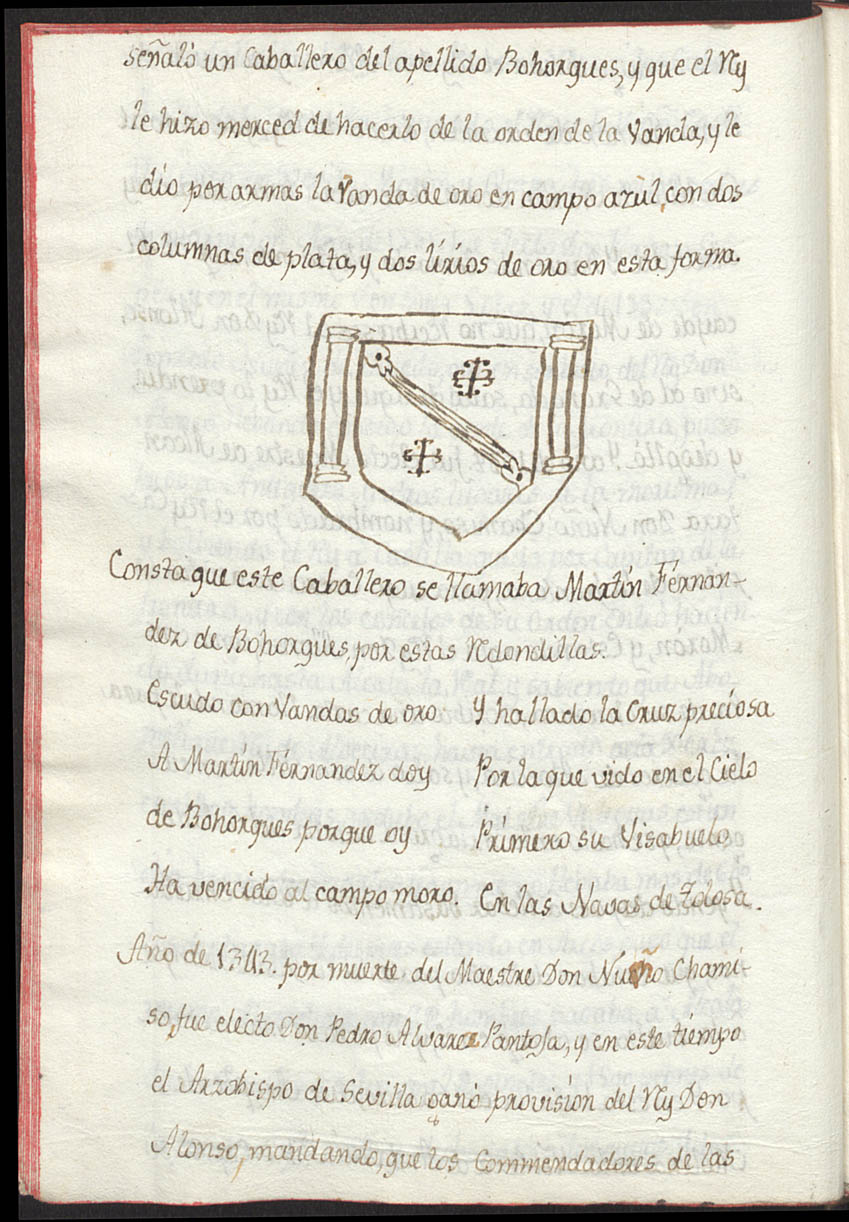 señaló un Caballero del apellido Bohorgues, y que el Rỹ
le hizo merced de hacerlo de la orden de la Vanda, y le
dio por armas la Vanda de oro en campo azul, con dos
columnas de plata, y dos lirios de oro en esta forma.
Consta que este Caballero se llamaba Martin Fernan-
dez de Bohorgues, por estas Rdondillas.
Escudo con Vandas de oro
A Martin Fernandez doy
de Bohorgues porque oy
Ha vencido al campo moro.
Y hallado la Cruz preciosa
Por la que vido en el Cielo
Primero su Visabuelo
En las Navas de Tolosa.
Año de 1343. por muerte del Maestre Don Nuño Chami-
so, fue electo Don Pedro Alvarez Pantoja, y en este tiempo
el Arzobispo de Sevilla ganó provision del Rỹ Don
Alonso, mandando, que los Commendadores de las